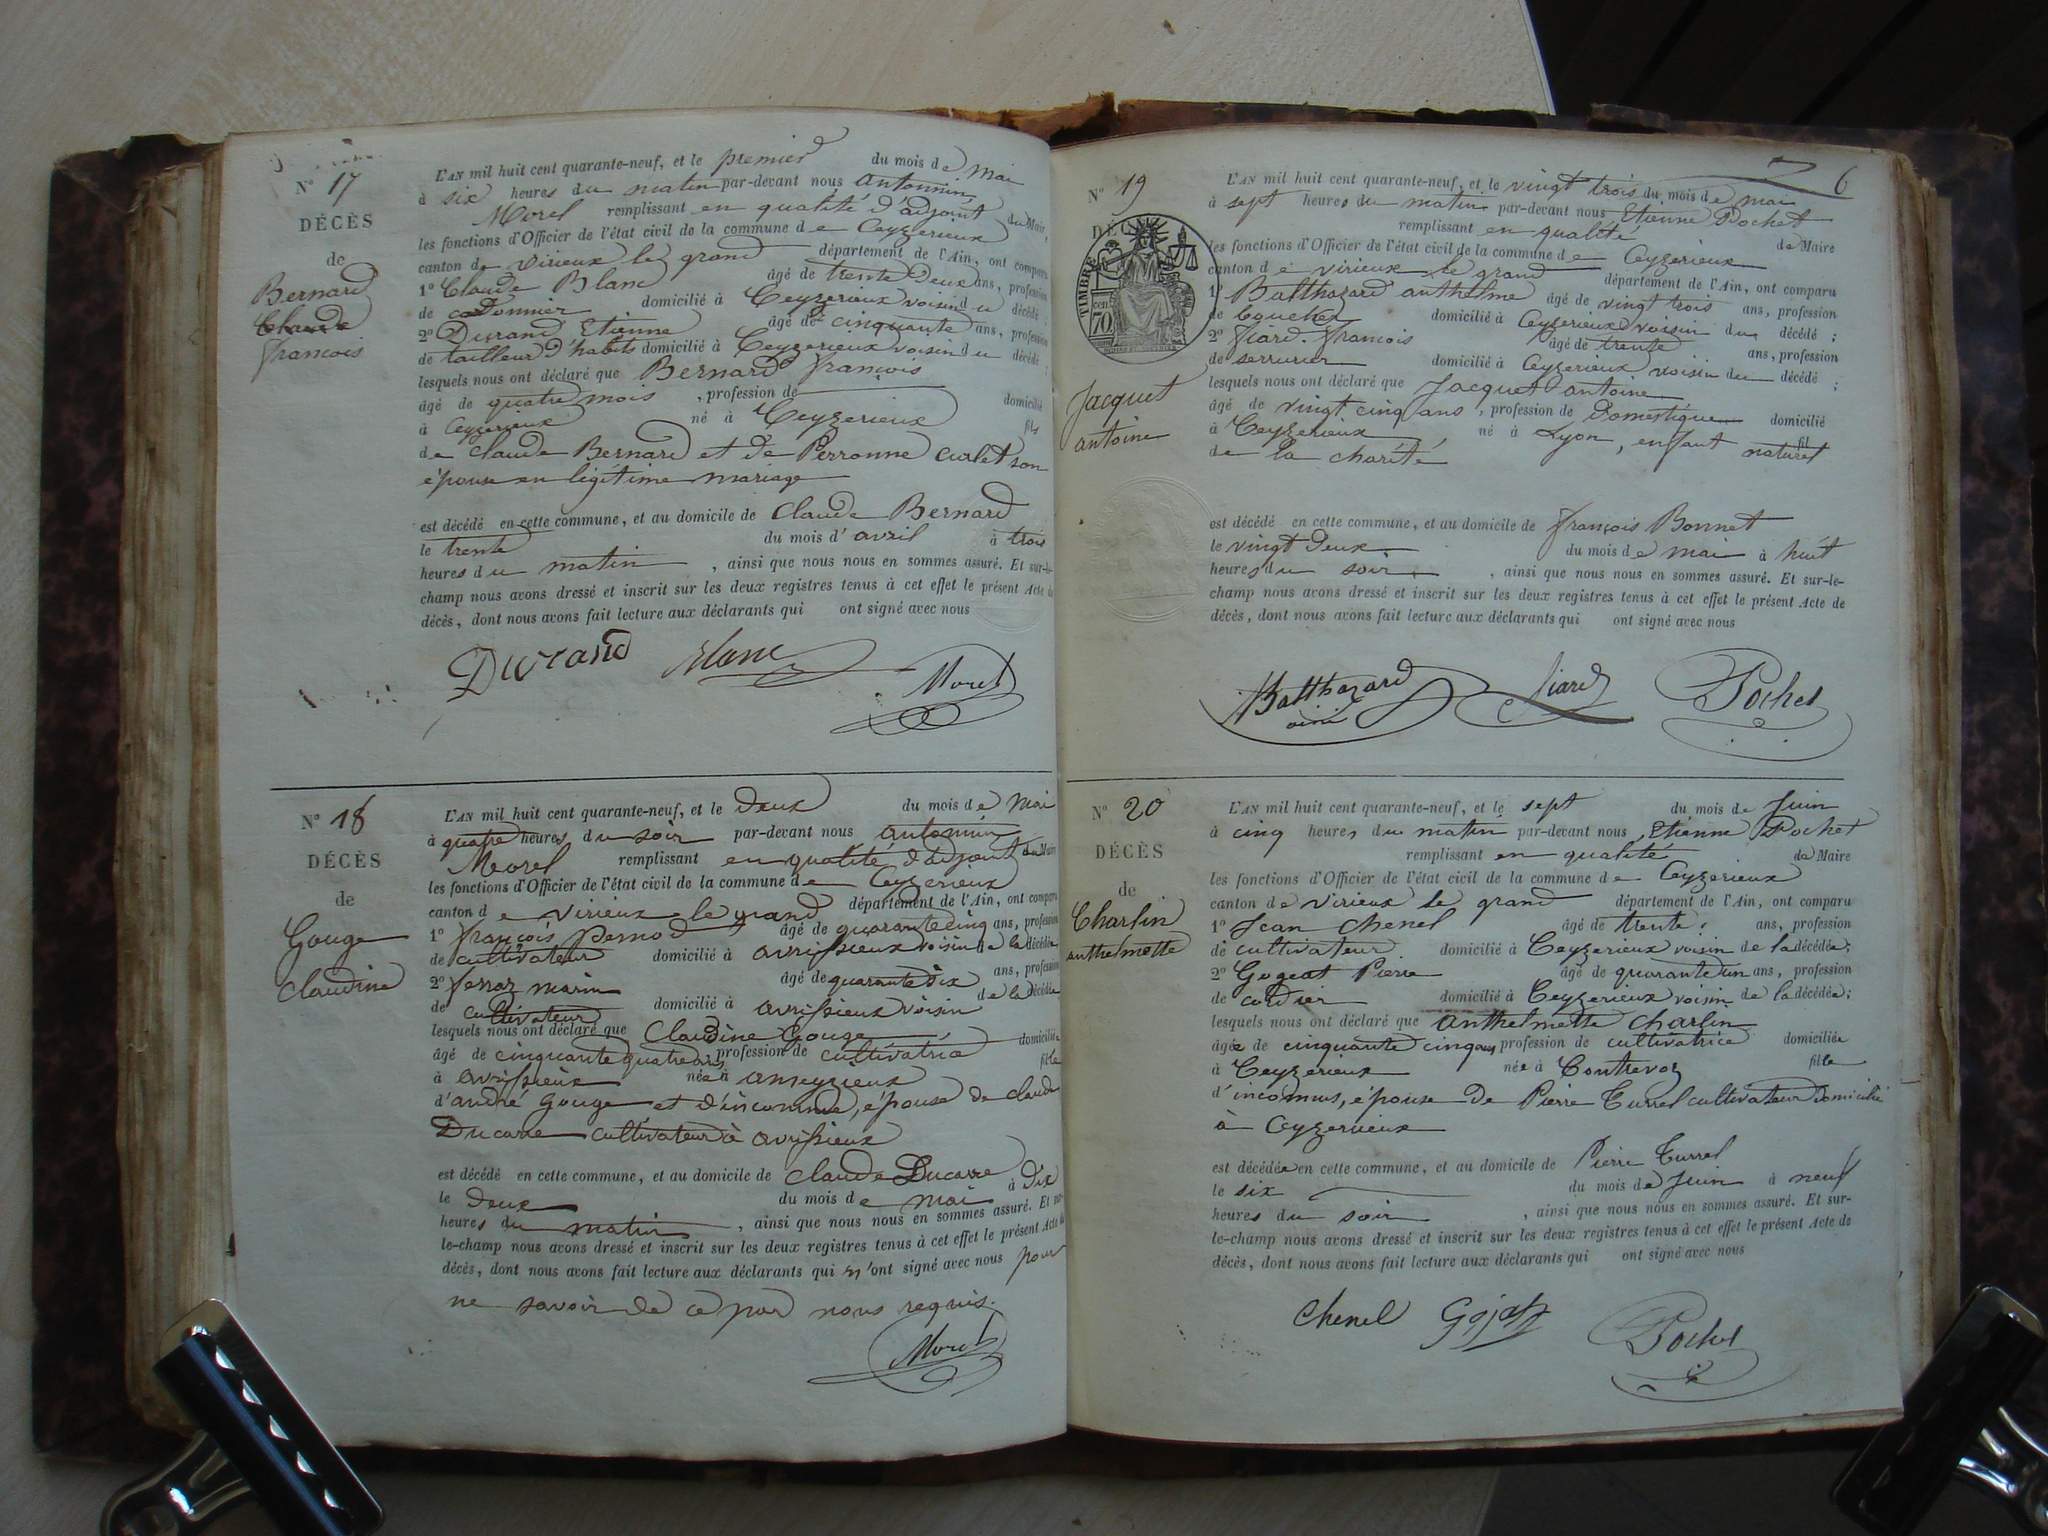 N° 17
DÉCÈS
de
Bernard
Claude
françois
L'AN mil huit cent quarante-neuf, et le premier du mois de mai
à six heures du matin par-devant nous antonnin
Morel remplissant en qualité d'adjoint du Maire,
les fonctions d'Officier de l'état civil de la commune de Ceyzerieux
canton de virieux le grand département de l'Ain, ont comparu
1° Claude Blanc âgé de trente Deux ans, profession
de cordonnier domicilié à Ceyzerieux voisin du décédé ;
2° Durand Etienne âgé de cinquante ans, profession
de tailleur d'habits domicilié à Ceyzerieux voisin du décédé ;
lesquels nous ont déclaré que Bernard françois
âgé de quatre mois , profession de domicilié
à Ceyzerieux né à Ceyzerieux fils
de Claude Bernard et de Perronne Curlet son
épouse en légitime mariage
est décédé en cette commune, et au domicile de Claude Bernard
le trente du mois d'avril à trois
heures du matin , ainsi que nous nous en sommes assuré. Et sur-le-
champ nous avons dressé et inscrit sur les deux registres tenus à cet effet le présent Acte de
décès, dont nous avons fait lecture aux déclarants qui ont signé avec nous
Durand Blanc Morel
N° 18
DÉCÈS
de
Gouge
Claudine
L'AN mil huit cent quarante-neuf, et le deux du mois de mai
à quatre heures du soir par-devant nous antonnin
Morel remplissant en qualité d'adjoint de Maire
les fonctions d'Officier de l'état civil de la commune de Ceyzerieux
canton de virieux le grand département de l'Ain, ont comparu
1° françois Pernod âgé de quarante cinq ans, profession
de cultivateur domicilié à avrissieux voisin de la décédée
2° ferraz marin âgé de quarante dix ans, profession
de cultivateur domicilié à avrissieux voisin de la décédée
lesquels nous ont déclaré que Claudine Gouge
âgé de cinquante quatre ans profession de cultivatrice domiciliée
à avrissieux née à ameyzieux fille
d'andré Gouge et d'incomme, épouse de claude
Ducarre cultivateur à avrissieux
est décédé en cette commune, et au domicile de Claude Ducarre
le deux du mois de mai à dix
heures du matin , ainsi que nous nous en sommes assuré. Et sur-
le-champ nous avons dressé et inscrit sur les deux registres tenus à cet effet le présent Acte de
décès, dont nous avons fait lecture aux déclarants qui n'ont signé avec nous pour
ne savoir de ce par nous requis.
Morel
6
N° 19
DÉC
TIMBRE
70 cen
Jacquet
antoine
L'AN mil huit cent quarante-neuf, et le vingt trois du mois de mai
à sept heures du matin par-devant nous Etienne Pochet
remplissant en qualité de Maire
les fonctions d'Officier de l'état civil de la commune de Ceyzerieux
canton de virieux le grand département de l'Ain, ont comparu
1° Balthazard anthelme âgé de vingt trois ans, profession
de domicilié à Ceyzerieux voisin du décédé ;
2° fiard françois âgé de trente ans, profession
de serrurier domicilié à Ceyzerieux voisin du décédé ;
lesquels nous ont déclaré que Jacquet antoine
âgé de vingt cinq ans , profession de Domestique domicilié
à Ceyzerieux né à Lyon, enfant naturel fil
de la charité
est décédé en cette commune, et au domicile de françois Bonnet
le vingt deux du mois de mai à huit
heures du soir , ainsi que nous nous en sommes assuré. Et sur-le-
champ nous avons dressé et inscrit sur les deux registres tenus à cet effet le présent Acte de
décès, dont nous avons fait lecture aux déclarants qui ont signé avec nous
Balthazard fiard Pochet
N° 20
DÉCÈS
de
Charlin
anthelmette
L'AN mil huit cent quarante-neuf, et le sept du mois de Juin
à cinq heures du matin par-devant nous Etienne Pochet
remplissant en qualité de Maire
les fonctions d'Officier de l'état civil de la commune de Ceyzerieux
canton de virieux le grand département de l'Ain, ont comparu
1° Jean Chenel âgé de trente ans, profession
de cultivateur domicilié à Ceyzerieux voisin de la décédée ;
2° Gogeat Pierre âgé de quarante un ans, profession
de cordier domicilié à Ceyzerieux voisin de la décédée ;
lesquels nous ont déclaré que anthelmette Charlin
âgée de cinquante cinq ans profession de cultivatrice domiciliée
à Ceyzerieux née à Contrevoz fille
d'inconnus, épouse de Pierre Turrel cultivateur domicilié
à Ceyzerieux
est décédée en cette commune, et au domicile de Pierre Turrel
le six du mois de Juin à neuf
heures du soir , ainsi que nous nous en sommes assuré. Et sur-
le-champ nous avons dressé et inscrit sur les deux registres tenus à cet effet le présent Acte de
décès, dont nous avons fait lecture aux déclarants qui ont signé avec nous
Chenel Gojat Pochet